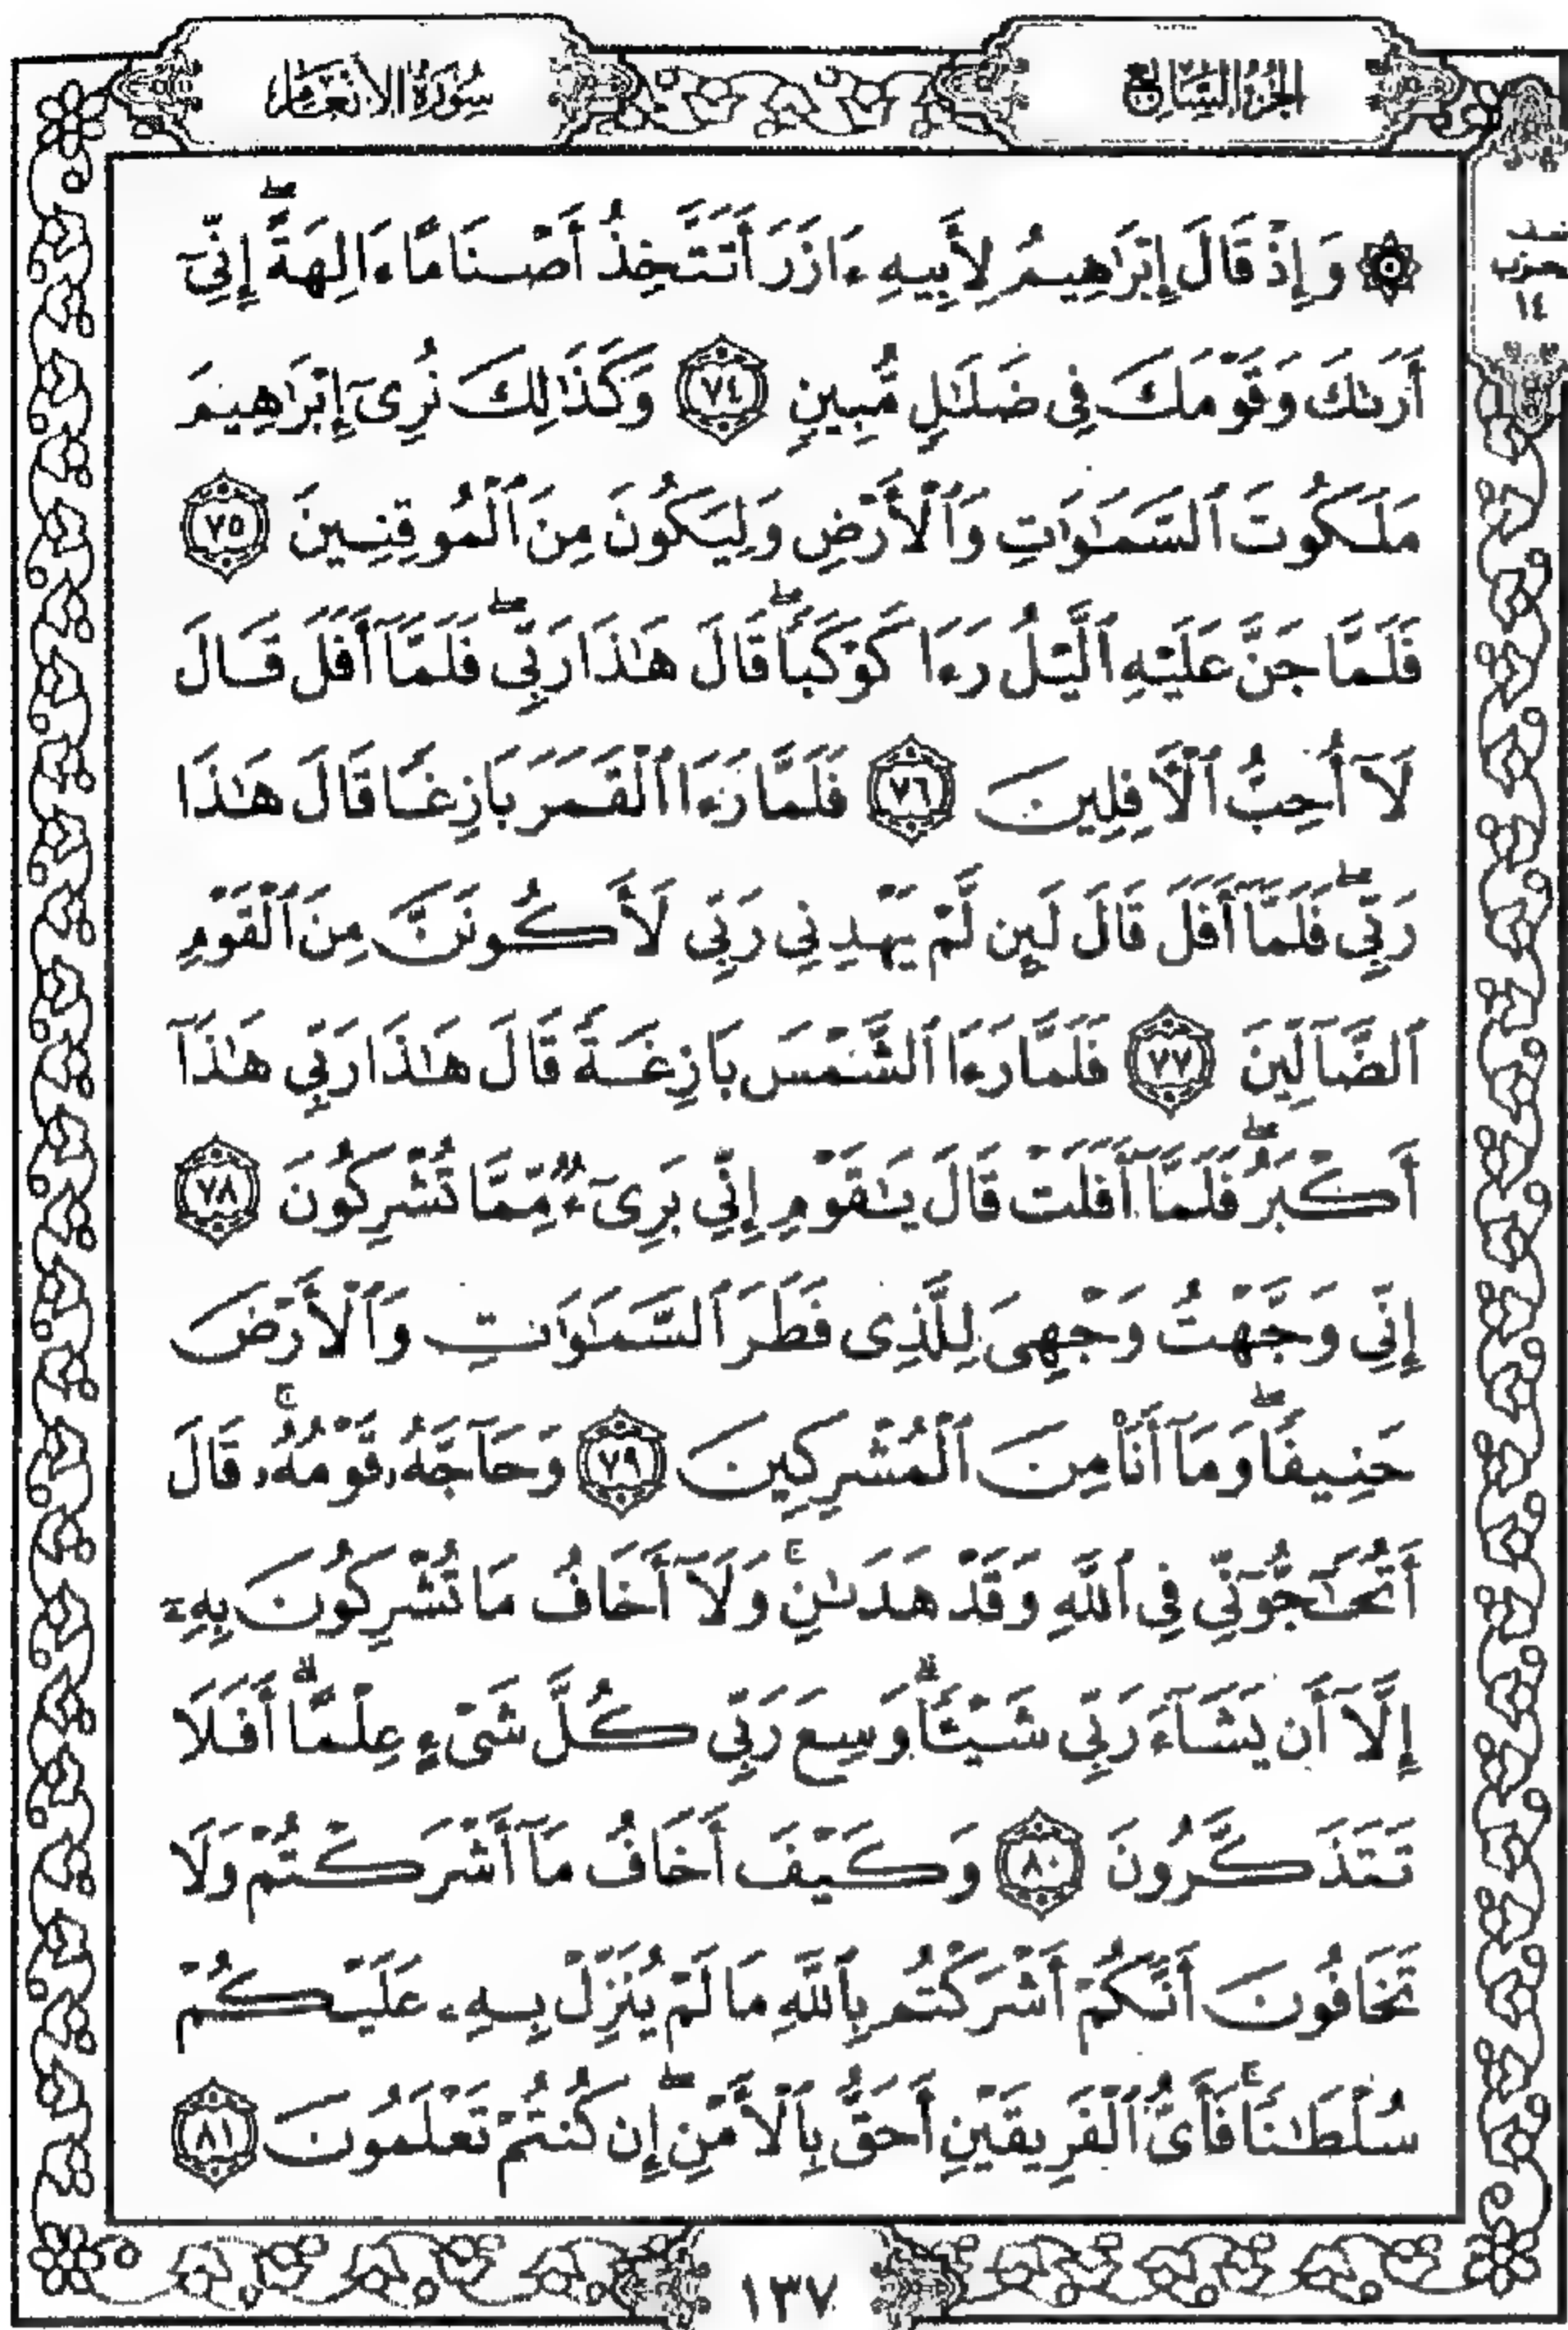 الجزء السابع
سورة الأنعام
۞ وَإِذْ قَالَ إِبْرَٰهِيمُ لِأَبِيهِ ءَازَرَ أَتَتَّخِذُ أَصْنَامًا ءَالِهَةً ۖ إِنِّىٓ
أَرَىٰكَ وَقَوْمَكَ فِى ضَلَٰلٍ مُّبِينٍ ٧٤ وَكَذَٰلِكَ نُرِىٓ إِبْرَٰهِيمَ
مَلَكُوتَ ٱلسَّمَٰوَٰتِ وَٱلْأَرْضِ وَلِيَكُونَ مِنَ ٱلْمُوقِنِينَ ٧٥
فَلَمَّا جَنَّ عَلَيْهِ ٱلَّيْلُ رَءَا كَوْكَبًا ۖ قَالَ هَٰذَا رَبِّى ۖ فَلَمَّآ أَفَلَ قَالَ
لَآ أُحِبُّ ٱلْءَافِلِينَ ٧٦ فَلَمَّا رَءَا ٱلْقَمَرَ بَازِغًا قَالَ هَٰذَا
رَبِّى ۖ فَلَمَّآ أَفَلَ قَالَ لَئِن لَّمْ يَهْدِنِى رَبِّى لَأَكُونَنَّ مِنَ ٱلْقَوْمِ
ٱلضَّآلِّينَ ٧٧ فَلَمَّا رَءَا ٱلشَّمْسَ بَازِغَةً قَالَ هَٰذَا رَبِّى هَٰذَآ
أَكْبَرُ ۖ فَلَمَّآ أَفَلَتْ قَالَ يَٰقَوْمِ إِنِّى بَرِىٓءٌ مِّمَّا تُشْرِكُونَ ٧٨
إِنِّى وَجَّهْتُ وَجْهِىَ لِلَّذِى فَطَرَ ٱلسَّمَٰوَٰتِ وَٱلْأَرْضَ
حَنِيفًا ۖ وَمَآ أَنَا۠ مِنَ ٱلْمُشْرِكِينَ ٧٩ وَحَآجَّهُۥ قَوْمُهُۥ ۚ قَالَ
أَتُحَٰٓجُّوٓنِّى فِى ٱللَّهِ وَقَدْ هَدَىٰنِ ۚ وَلَآ أَخَافُ مَا تُشْرِكُونَ بِهِۦٓ
إِلَّآ أَن يَشَآءَ رَبِّى شَيْـًٔا ۗ وَسِعَ رَبِّى كُلَّ شَىْءٍ عِلْمًا ۗ أَفَلَا
تَتَذَكَّرُونَ ٨٠ وَكَيْفَ أَخَافُ مَآ أَشْرَكْتُمْ وَلَا
تَخَافُونَ أَنَّكُمْ أَشْرَكْتُم بِٱللَّهِ مَا لَمْ يُنَزِّلْ بِهِۦ عَلَيْكُمْ
سُلْطَٰنًا ۚ فَأَىُّ ٱلْفَرِيقَيْنِ أَحَقُّ بِٱلْأَمْنِ ۖ إِن كُنتُمْ تَعْلَمُونَ ٨١
١٤
١٣٧